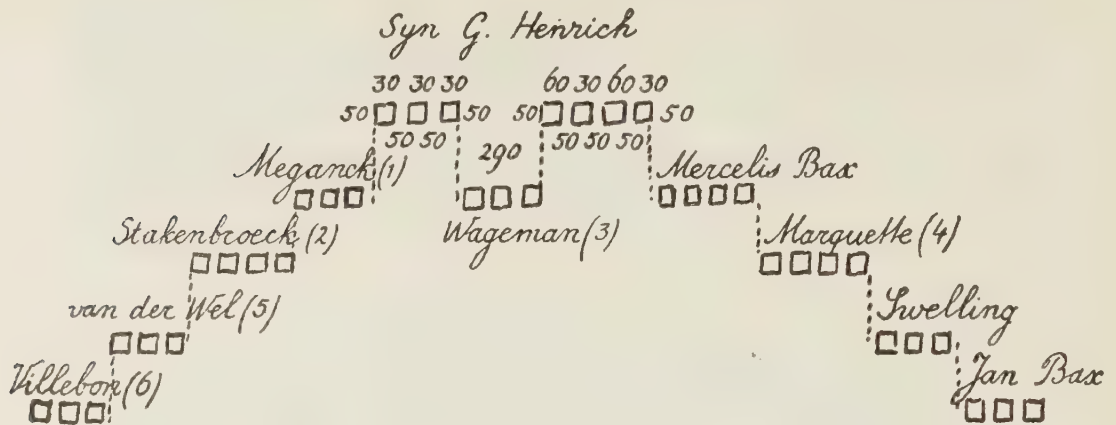 Syn G. Henrich
30 30 30 60 30 60 30
50 50 50 50
50 50 290 50 50 50
Meganck (1) Mercelis Bax
Stakenbroeck (2) Wageman (3) Marquette (4)
van der Wel (5) Swelling
Villebon (6) Jan Bax